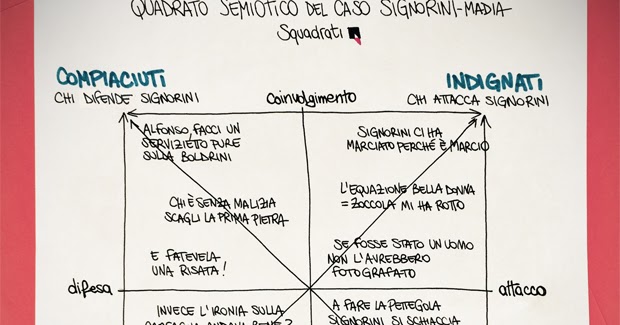 QUADRATO SEMIOTICO DEL CASO SIGNORINI-MADIA
Squadrati
COMPIACIUTI
CHI DIFENDE SIGNORINI
Coinvolgimento
INDIGNATI
CHI ATTACCA SIGNORINI
ALFONSO, FACCI UN
SERVIZIETTO PURE
SULLA BOLDRINI
SIGNORINI CI HA
MARCIATO PERCHÉ È MARCIO
CHI È SENZA MALIZIA
SCAGLI LA PRIMA PIETRA
L'EQUAZIONE BELLA DONNA
= ZOCCOLA MI HA ROTTO
E FATEVELA
UNA RISATA!
SE FOSSE STATO UN UOMO
NON L'AVREBBERO
FOTOGRAFATO
difesa
attacco
INVECE L'IRONIA SULLA
A FARE LA PETTEGOLA
SIGNORINI SI SCHIACCIA